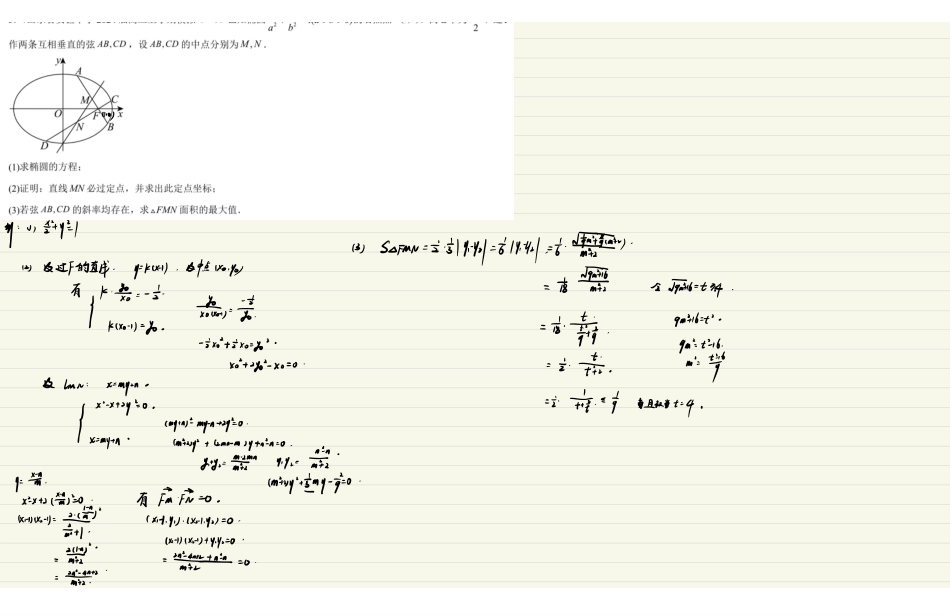 a² b²
2
作两条互相垂直的弦 AB,CD，设 AB,CD 的中点分别为 M,N．
y
A
M
C
O
F
(1,0)
x
N
B
D
(1)求椭圆的方程；
(2)证明：直线 MN 必过定点，并求出此定点坐标；
(3)若弦 AB,CD 的斜率均存在，求△FMN 面积的最大值．
解：(1) x²/2+y²=1
(2) 设过F的直线 y=k(x-1)．设中点(x₀,y₀)
有 { k·y₀/x₀=-1/2．
k(x₀-1)=y₀．
y₀/(x₀(x₀-1))=(-1/2)/y₀．
-1/2x₀²+1/2x₀=y₀²．
x₀²+2y₀²-x₀=0
设 lMN：x=my+n．
{ x²-x+2y²=0．
x=my+n．
(my+n)²-my-n+2y²=0．
(m²+2)y²+(2mn-m)y+n²-n=0．
y₁+y₂=(m-2mn)/(m²+2) y₁·y₂=(n²-n)/(m²+2)
y=(x-n)/m．
x²-x+2((x-n)/m)²=0．
有 FM·FN=0．
(x₁-1)(x₂-1)=2·((1-n)/m)²/(2/m²+1)．
(x₁-1,y₁)·(x₂-1,y₂)=0．
(x₁-1)(x₂-1)+y₁y₂=0
=2(1-n)²/(m²+2)．
=(2n²-4n+2+n²-n)/(m²+2)=0．
=(2n²-4n+2)/(m²+2)．
(3) S△FMN=1/2·1/3|y₁-y₂|=1/6|y₁-y₂|
=1/18·√(9m²+16)/(m²+2) 令√(9m²+16)=t≥4．
9m²+16=t²．
9m²=t²-16．
m²=(t²-16)/9
=1/2·t/(t²+2)．
≤1/9 当且仅当t=4．